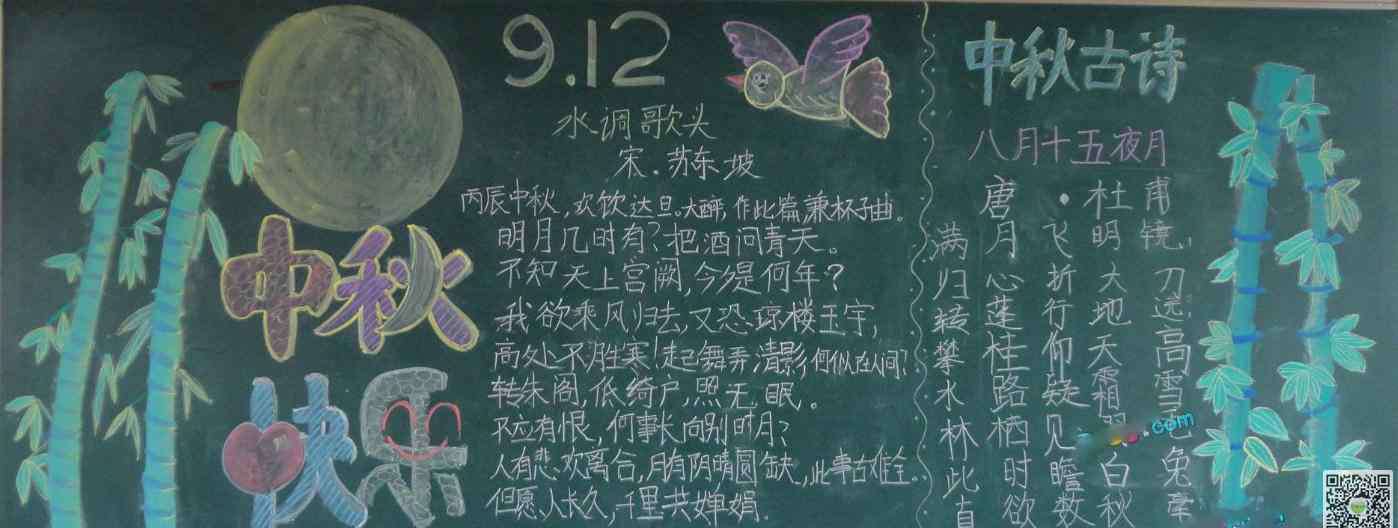 9.12
中秋
快乐
水调歌头
宋.苏东坡
丙辰中秋,欢饮达旦。大醉,作此篇兼怀子由。
明月几时有?把酒问青天。
不知天上宫阙,今夕是何年?
我欲乘风归去,又恐琼楼玉宇,
高处不胜寒!起舞弄清影,何似在人间?
转朱阁,低绮户,照无眠。
不应有恨,何事长向别时月?
人有悲欢离合,月有阴晴圆缺,此事古难全.
但愿人长久,千里共婵娟.
中秋古诗
八月十五夜月
唐·杜甫
满月飞明镜,
归心折大刀
转蓬行地远,
攀桂仰天高
水路疑霜雪
林栖见
此时瞻白兔
直欲数秋毫
.com